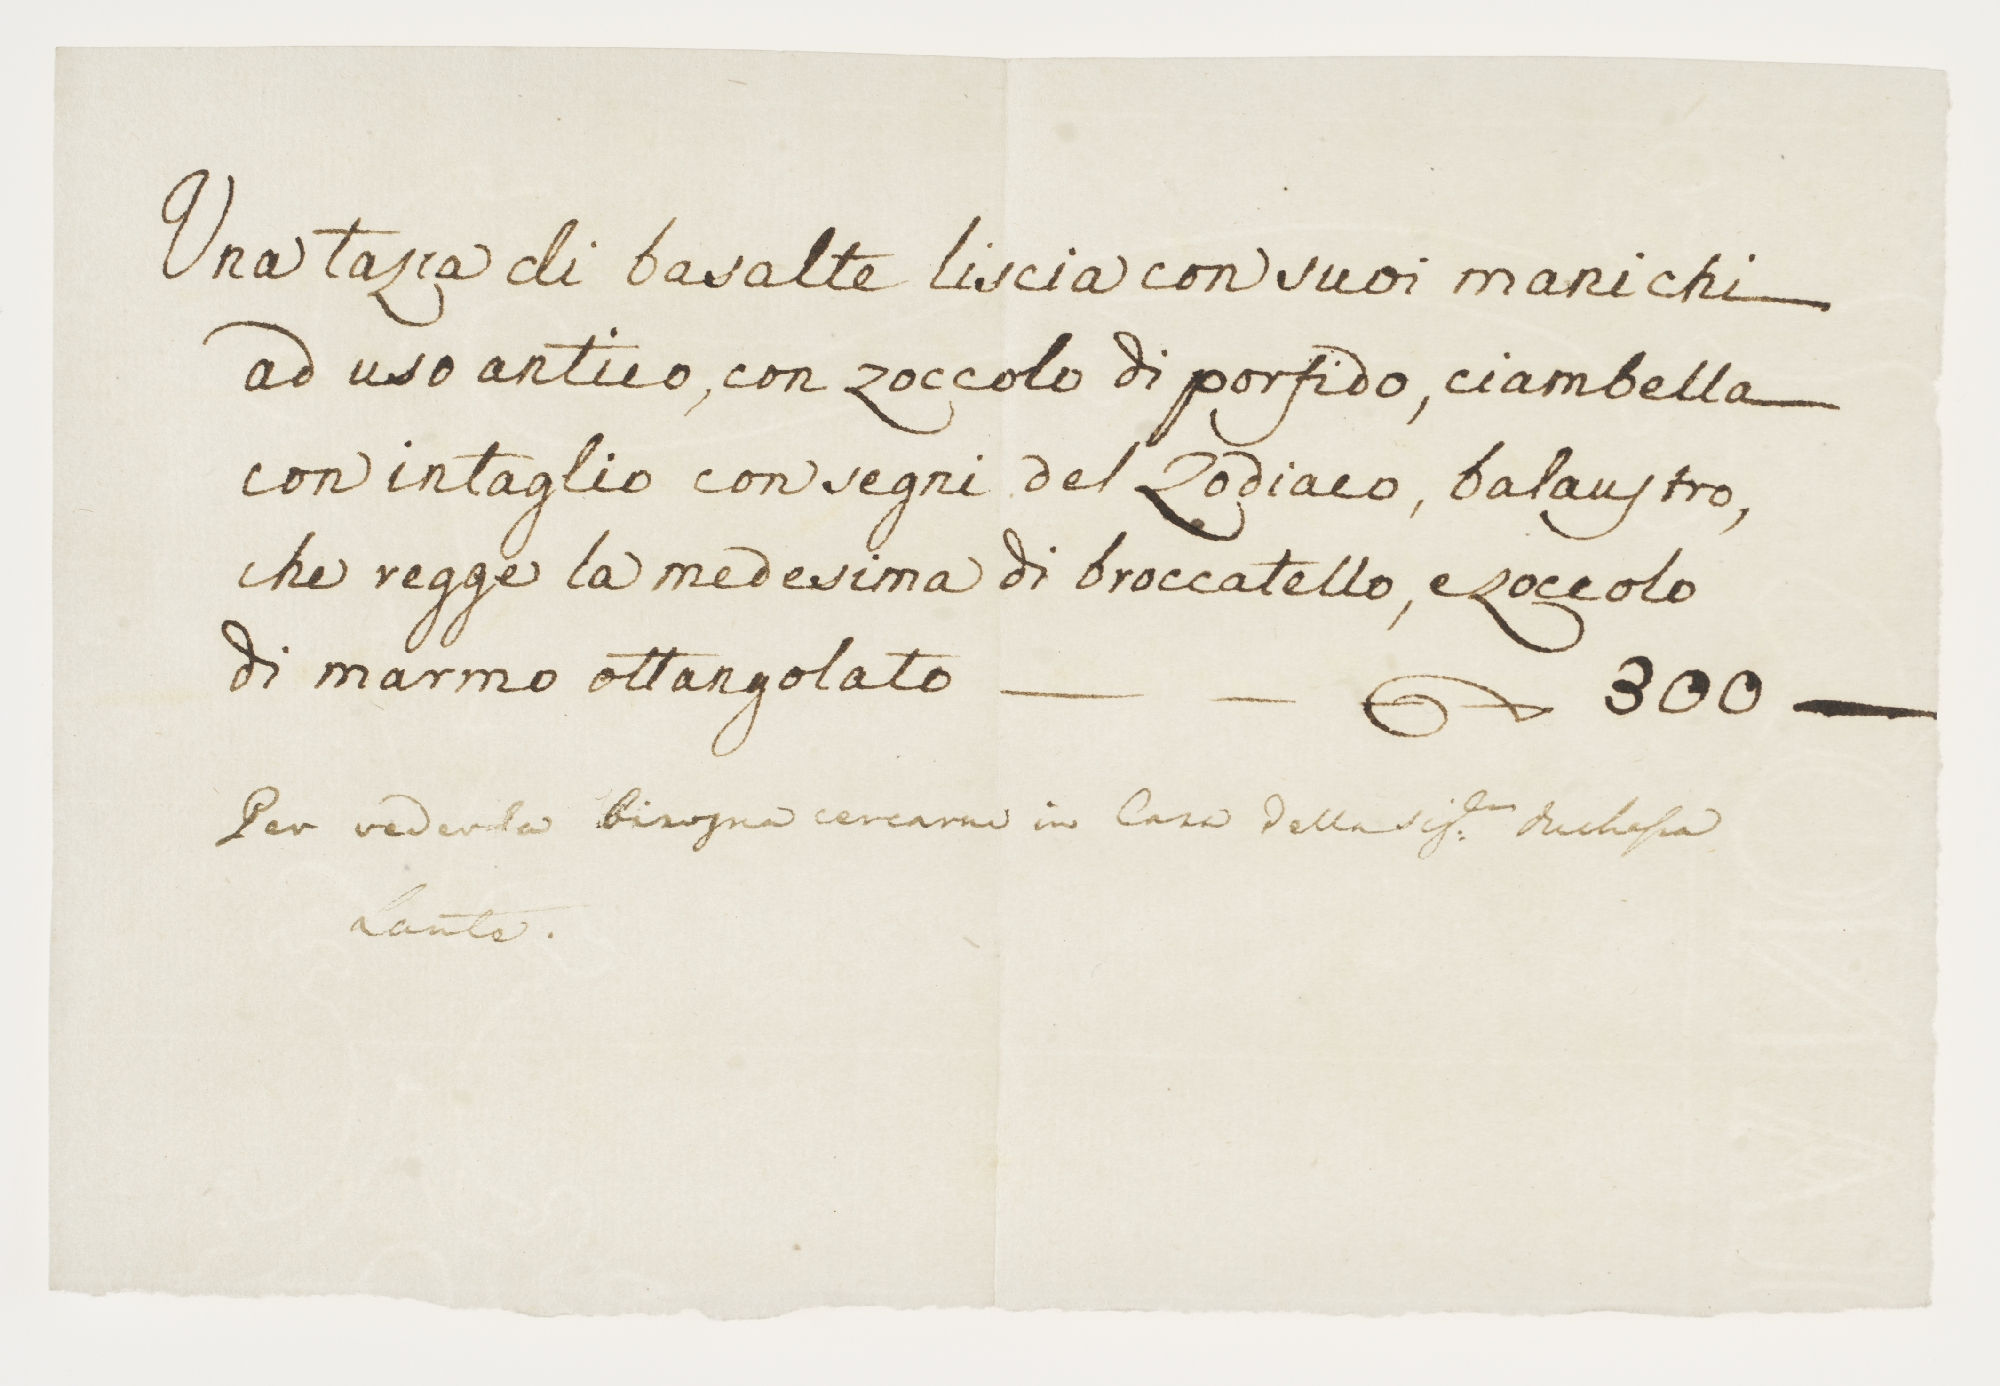 Una tazza di basalte liscia con suoi manichi
ad uso antico, con zoccolo di porfido, ciambella
con intaglio con segni del Zodiaco, balaustro,
che regge la medesima di broccatello, e zoccolo
di marmo ottangolato — — 300 —
Per vederla bisogna cercarne in Casa della Sig.ra Duchessa
Lante.